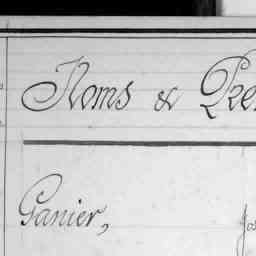 Noms & Pré
Ganier, Jos